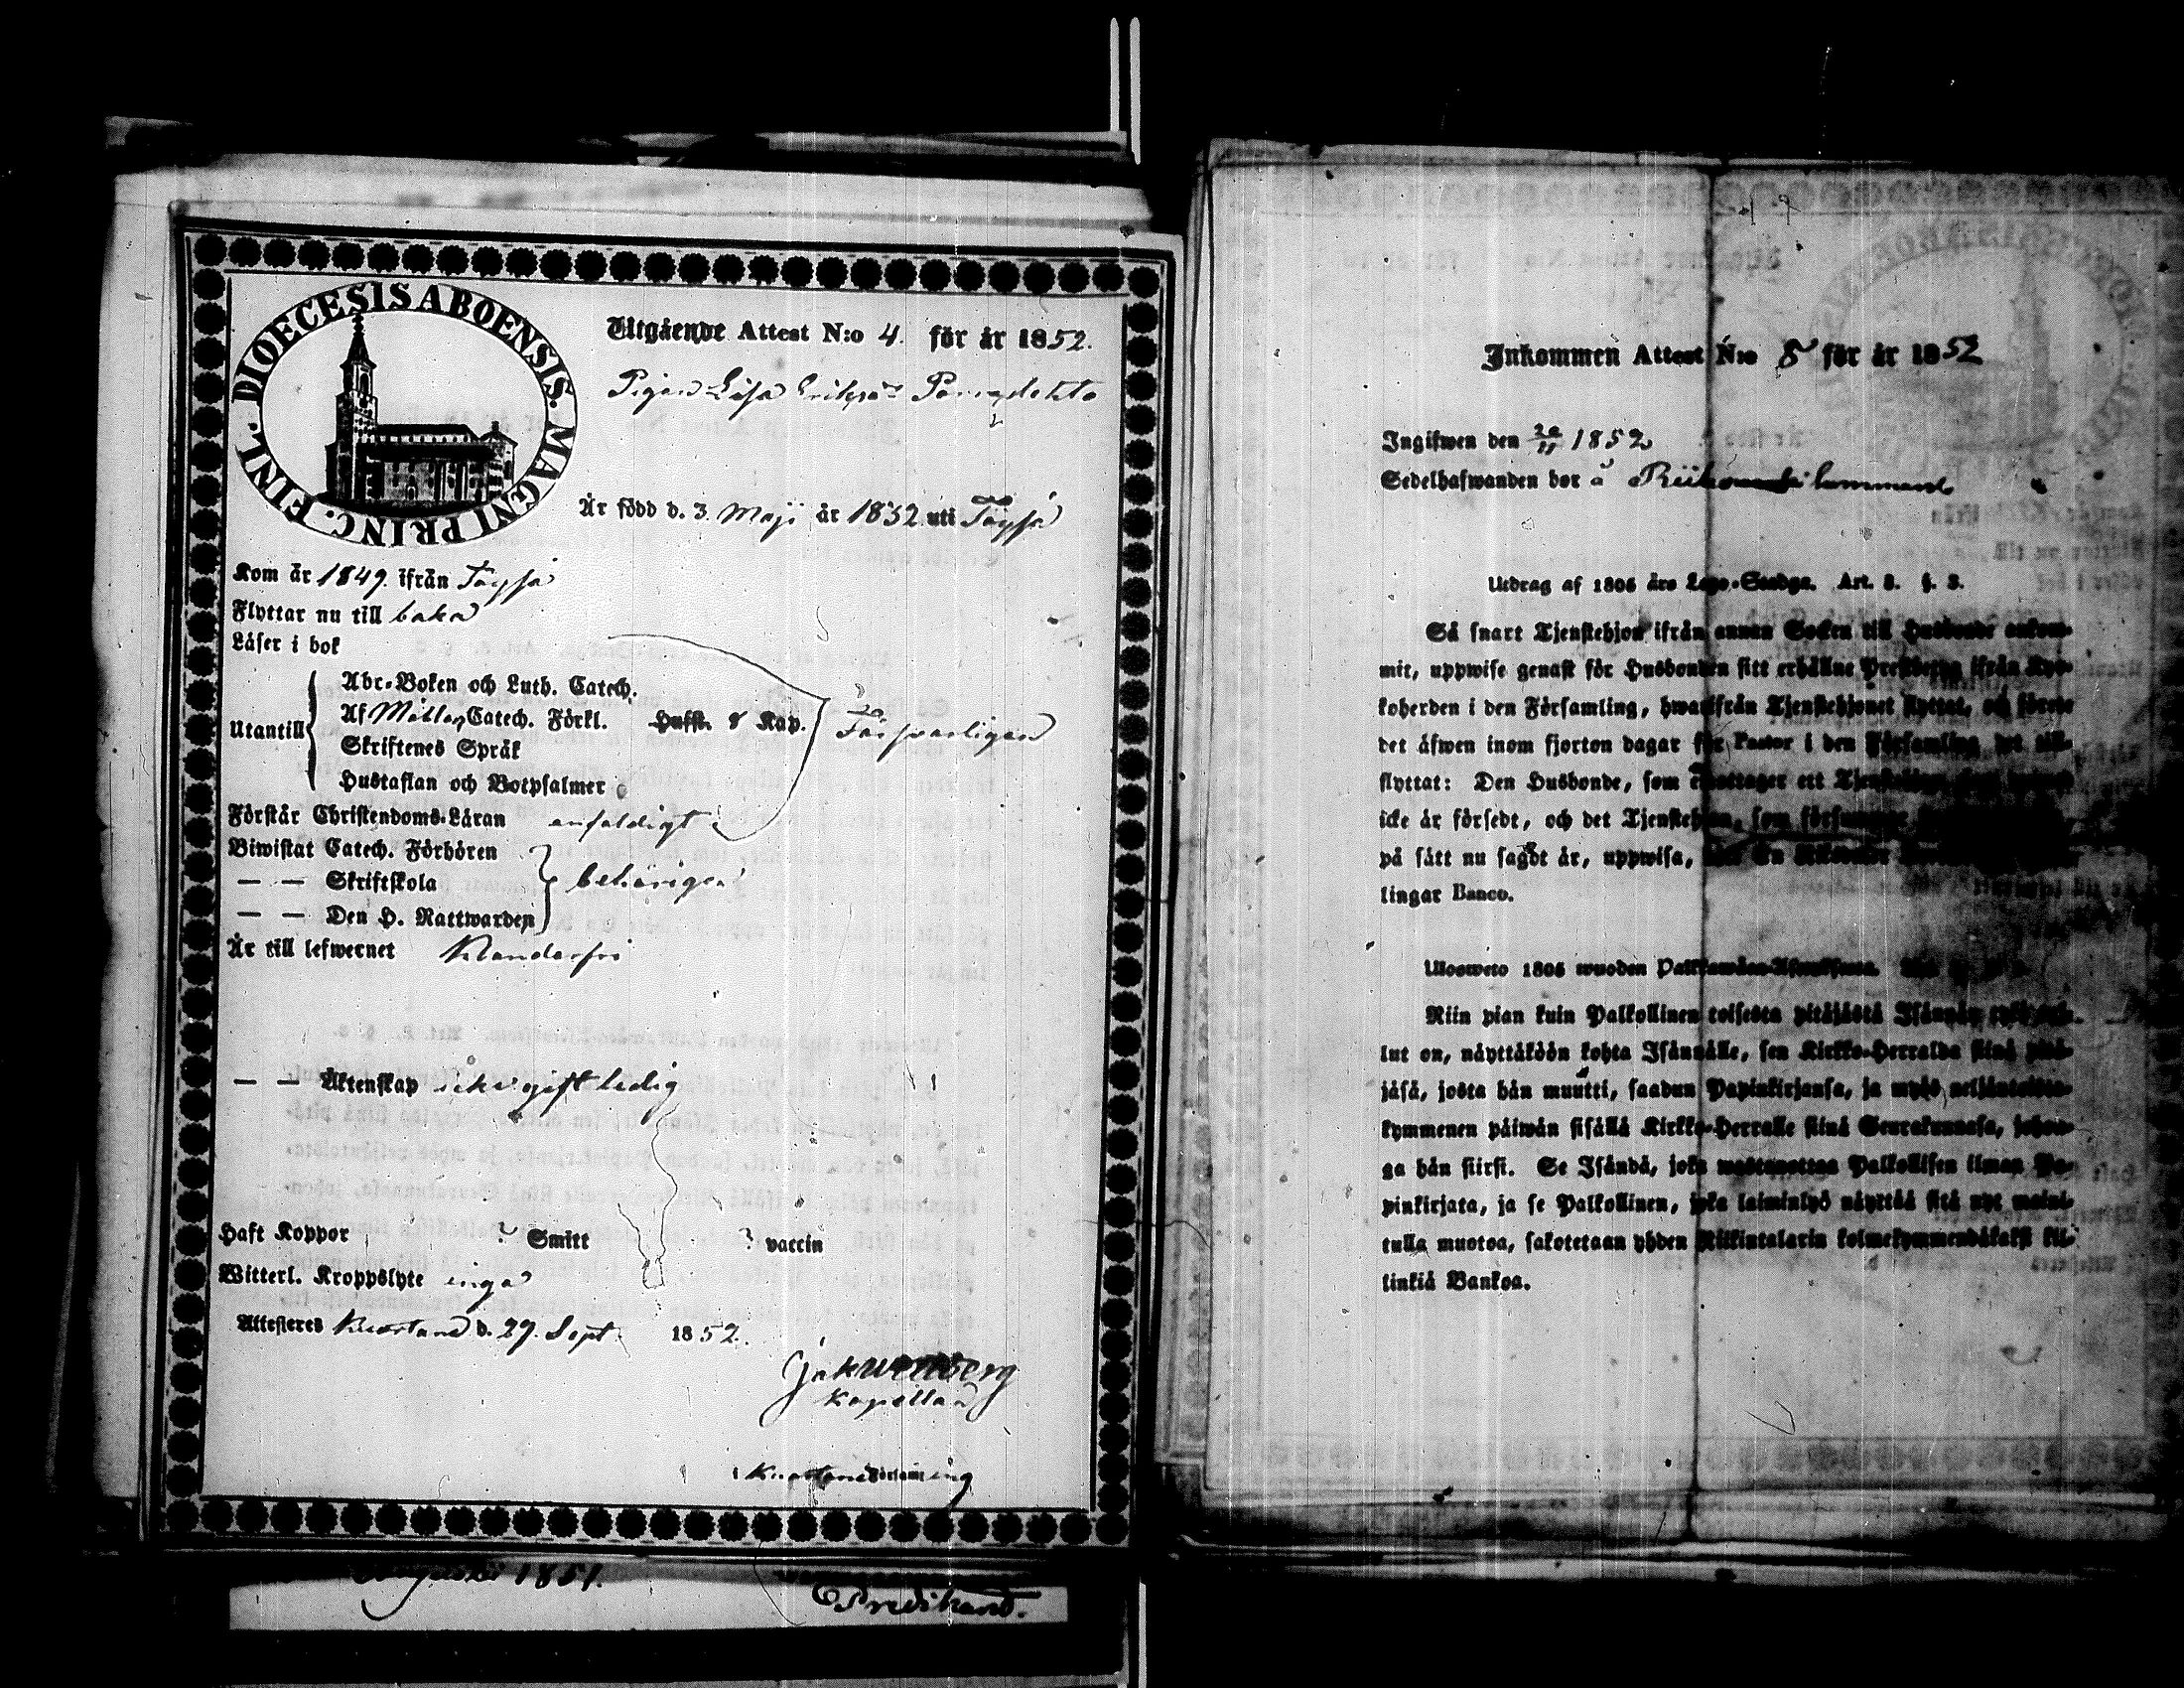 DIOECESIS ABOENSIS. MAGNI PRINC. FINL.
Utgående Attest N:o 4. för år 1852.
Pigan Lisa Eriks
Är född d. 3 Maji år 1832 uti Töysä
Kom år 1849. ifrån Töysä
Flyttar nu till baka
Läser i bok
Utantill
Abc-Boken och Luth. Catech.
Af Möllers Catech. Förkl. Hufst. 8 Kap.
Skriftenes Språk
Hustaflan och Botpsalmer
Försvarligen
Förstår Christendoms-Läran enfaldigt
Biwistat Catech. Förhören
— — Skriftskola
— — Den H. Nattwarden
behörigen
Är till lefwernet Klanderfri
— — Äktenskap icke gift ledig
Haft Koppor ? Smitt ? vaccin
Witterl. Kroppslyte inga
Attesteres Kuortane d. 29. Sept. 1852.
Kapellan
i Kuortane Församling
Augusti 1851.
Predikant.
Inkommen Attest N:o 8 för år 1852
Ingifwen den 20/11 1852
Sedelhafwanden bor å
Utdrag af 1805 års Lego-Stadga. Art. 3. §. 3.
Så snart Tjenstehjon ifrån annan Socken till Husbonde ankom-
mit, uppwise genast för Husbonden sitt erhållne Prestbetyg ifrån Kyr-
koherden i den Församling, hwarifrån Tjenstehjonet flyttat, och förete
det äfwen inom fjorton dagar för Pastor i den Församling det till-
flyttat: Den Husbonde, som emottager ett Tjenstehjon,
icke är försedt, och det Tjenstehjon, som försummar
på sätt nu sagdt är, uppwisa, böte En Riksdaler
lingar Banco.
Ulosweto 1805 wuoden Palkkawäen-Asetuksesta.
Niin pian kuin Palkollinen toisesta pitäjästä Isännän tykö tul-
lut on, näyttäköön kohta Isännälle, sen Kirkko-Herralda siinä pitä-
jäsä, josta hän muutti, saadun Papinkirjansa, ja myös neljäntoista-
kymmenen päiwän sisällä Kirkko-Herralle siinä Seurakunnasa, johon-
ga hän siirsi. Se Isändä, joka wastaanottaa Palkollisen ilman Pa-
pinkirjata, ja se Palkollinen, joka laiminlyö näyttää sitä nyt maini-
tulla muotoa, sakotetaan yhden Riikintalarin kolmekymmendäkaksi kil-
linkiä Bankoa.